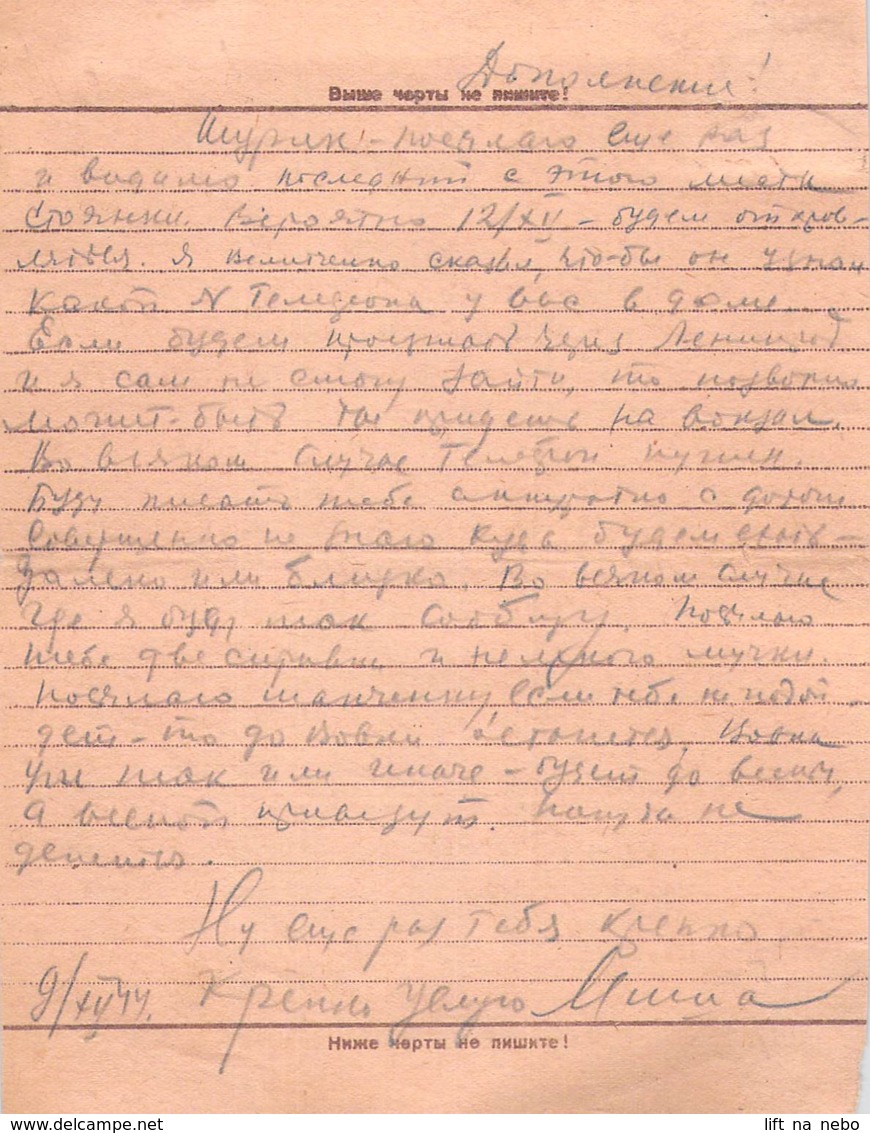 Дополнение!
Выше черты не пишите!
Шурик! - посылаю еще раз
и видимо последний с этого места
стоянки. Вероятно 12/XII - будем отправ-
ляться. Я Величенко сказал, что-бы он узнал
какой N телефона у вас в доме.
Если будем проезжать через Ленинград
и я сам не смогу зайти, то позвоню
может-быть ты придешь на вокзал.
Во всяком случае телефон нужен.
Буду писать тебе аккуратно с дороги
Совершенно не знаю куда будем ехать -
далеко или близко. Во всяком случае
где я буду так сообщу. Посылаю
тебе две справки и немного мучки.
Посылаю если тебе не подой
дет - то до Вовки останется. Вовка
уж так или иначе - будет до весны,
а весной приведут. не
денется.
Ну еще раз тебя крепко
9/XII 44. Крепко целую Миша
Ниже черты не пишите!
lift na nebo